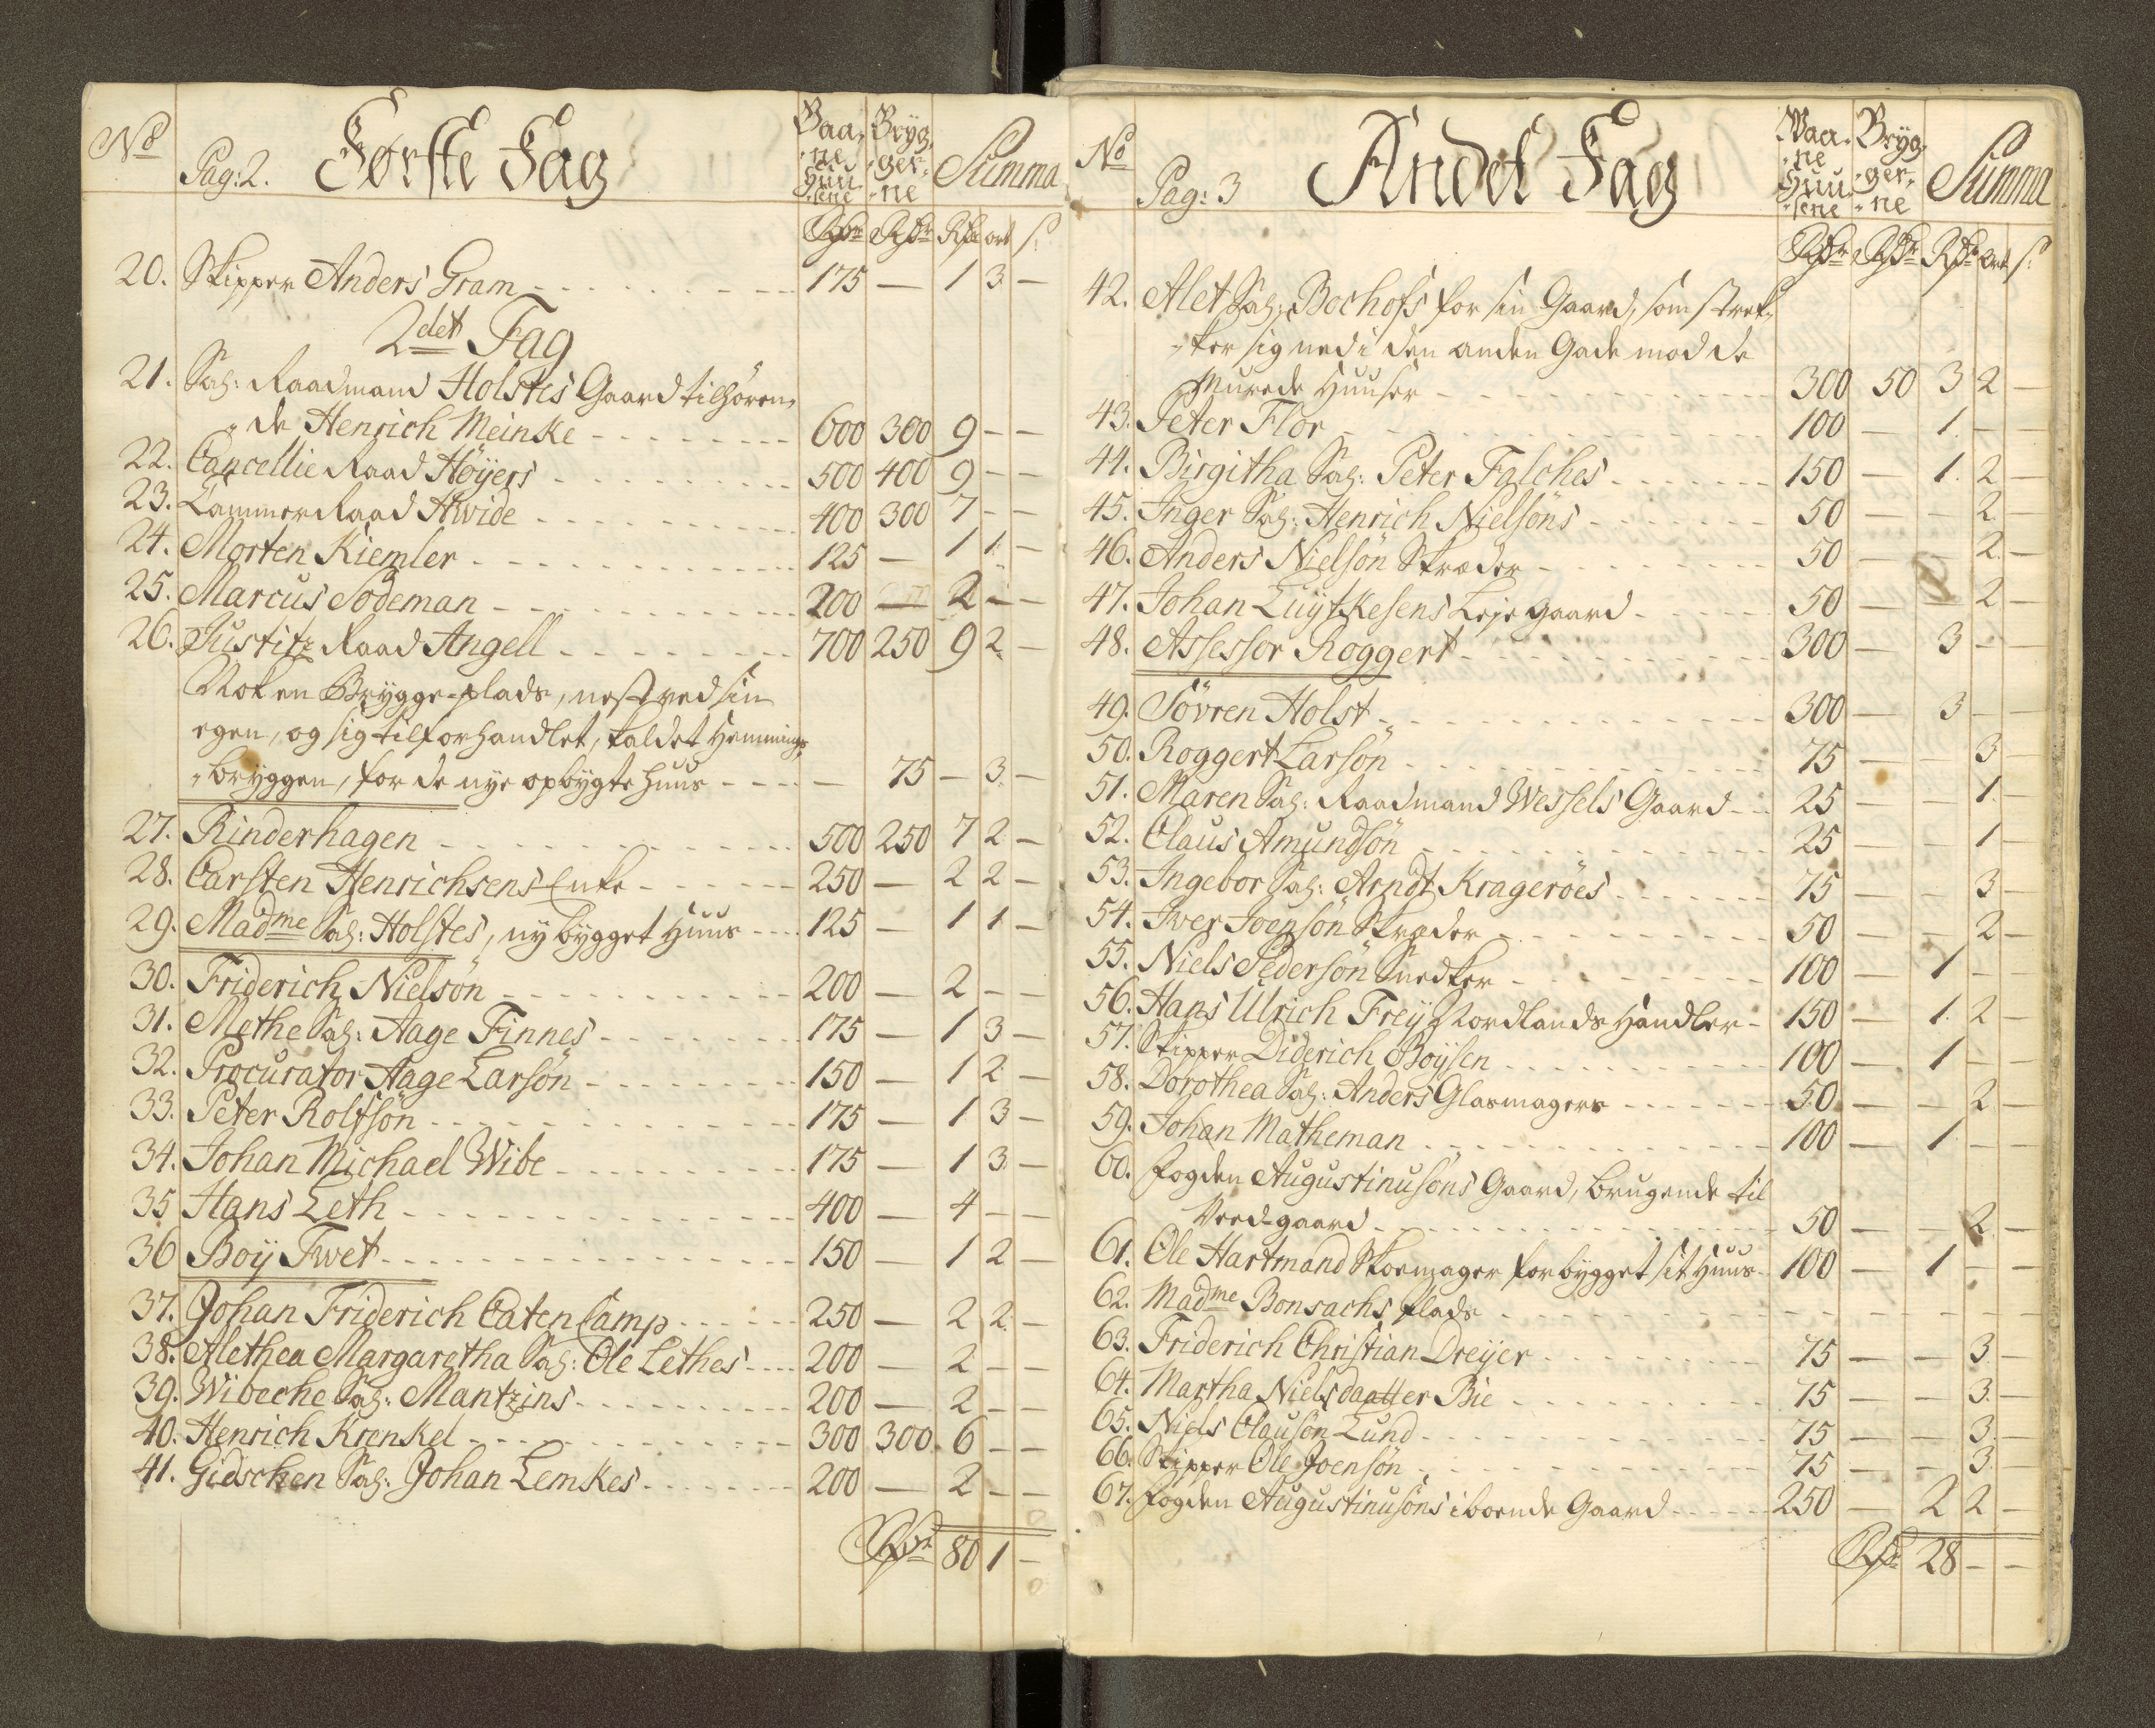 No
Pag: 2. Første Fag
Vaa- Brÿg-
-ne -ger-
Huu- -ne
-sene
Summa
Rdr Rdr Rdr ort s:
20. Skipper Anders Gram - - - 175 — 1 3 —
2det Fag
21. Sal: Raadmand Holstes Gaard tilhøren-
-de Henrich Meinke - - - 600 300 9 — —
22. Cancellie Raad Høÿers - - - 500 400 9 — —
23. Cammer Raad Hwide - - - 400 300 7 — —
24. Morten Kiemler - - - 125 — 1 1 —
25. Marcus Sodeman - - - 200 — 2 — —
26. Justitz Raad Angell - - - 700 250 9 2 —
Nok en Brÿgge-plads, nest ved sin
egen, og sig tilforhandlet, kaldet Hemmings
-brÿggen, for de nÿe opbÿgte huus - - - — 75 — 3 —
27. Rinderhagen - - - 500 250 7 2 —
28. Carsten Henrichsens Enke - - - 250 — 2 2 —
29. Madme Sal: Holstes, nÿ bÿgget Huus - - - 125 — 1 1 —
30. Friderich Nielsøn - - - 200 — 2 — —
31. Methe Sal: Aage Finnes - - - 175 — 1 3 —
32. Procurator Aage Larsøn - - - 150 — 1 2 —
33. Peter Rolfsøn - - - 175 — 1 3 —
34. Johan Michael Wibe - - - 175 — 1 3 —
35 Hans Leth - - - 400 — 4 — —
36 Boÿ Twet - - - 150 — 1 2 —
37. Johan Friderich CatenCamp - - - 250 — 2 2 —
38. Alethea Margaretha Sal: Ole Lethes - - - 200 — 2 — —
39. Wibeche Sal: Mantzins - - - 200 — 2 — —
40. Henrich Krenkel - - - 300 300 6 — —
41. Gidschen Sal: Johan Lemkes - - - 200 — 2 — —
Rdr 80 1 —
No
Pag: 3 Andet Fag
Waa- Brÿg-
-ne -ger-
Huu- -ne
-sene
Summa
Rdr Rdr Rdr ort s:
42. Alet Sal: Bochofs for sin Gaard, som strek-
-ker sig ned i den anden Gade mod de
Murede Huuser - - - 300 50 3 2 —
43. Peter Flor - - - 100 — 1 — —
44. Birgitha Sal: Peter Falches - - - 150 — 1 2 —
45. Inger Sal: Henrich Nielsøns - - - 50 — — 2 —
46. Anders Nielsøn Skræder - - - 50 — — 2 —
47. Johan Luÿtkesens Leje gaard - - - 50 — — 2 —
48. Assessor Roggert - - - 300 — 3 — —
49. Søvren Holst - - - 300 — 3 — —
50. Roggert Larsøn - - - 75 — — 3 —
51. Maren Sal: Raadmand Wessels Gaard - - - 25 — — 1 —
52. Claus Amundsøn - - - 25 — — 1 —
53. Ingebor Sal: Arndt Kragerøes - - - 75 — — 3 —
54. Iver Joensøn Skræder - - - 50 — — 2 —
55. Niels Pedersøn Snedker - - - 100 — 1 —
56. Hans Ulrich Freÿ Nordlands Handler - 150 — 1 2 —
57. Skipper Diderich Boÿsen - - - 100 — 1 — —
58. Dorothea Sal: Anders Glasmagers - - - 50 — — 2 —
59. Johan Matheman - - - 100 — 1 — —
60. Fogden Augustinusøns Gaard, brugende til
Veed-gaard - - - 50 — — 2 —
61. Ole Hartmand Skoemager forbÿgget sit Huus - 100 — 1 — —
62. Madme Bonsachs plads - - -
63. Friderich Christian Dreÿer - - - 75 — — 3 —
64. Martha Nielsdaatter Bie - - - 75 — — 3 —
65. Niels Clausøn Lund - - - 75 — — 3 —
66. Skipper Ole Joensøn - - - 75 — — 3 —
67. Fogden Augustinusøns iboende Gaard - - - 250 — 2 2 —
Rdr 28 — —